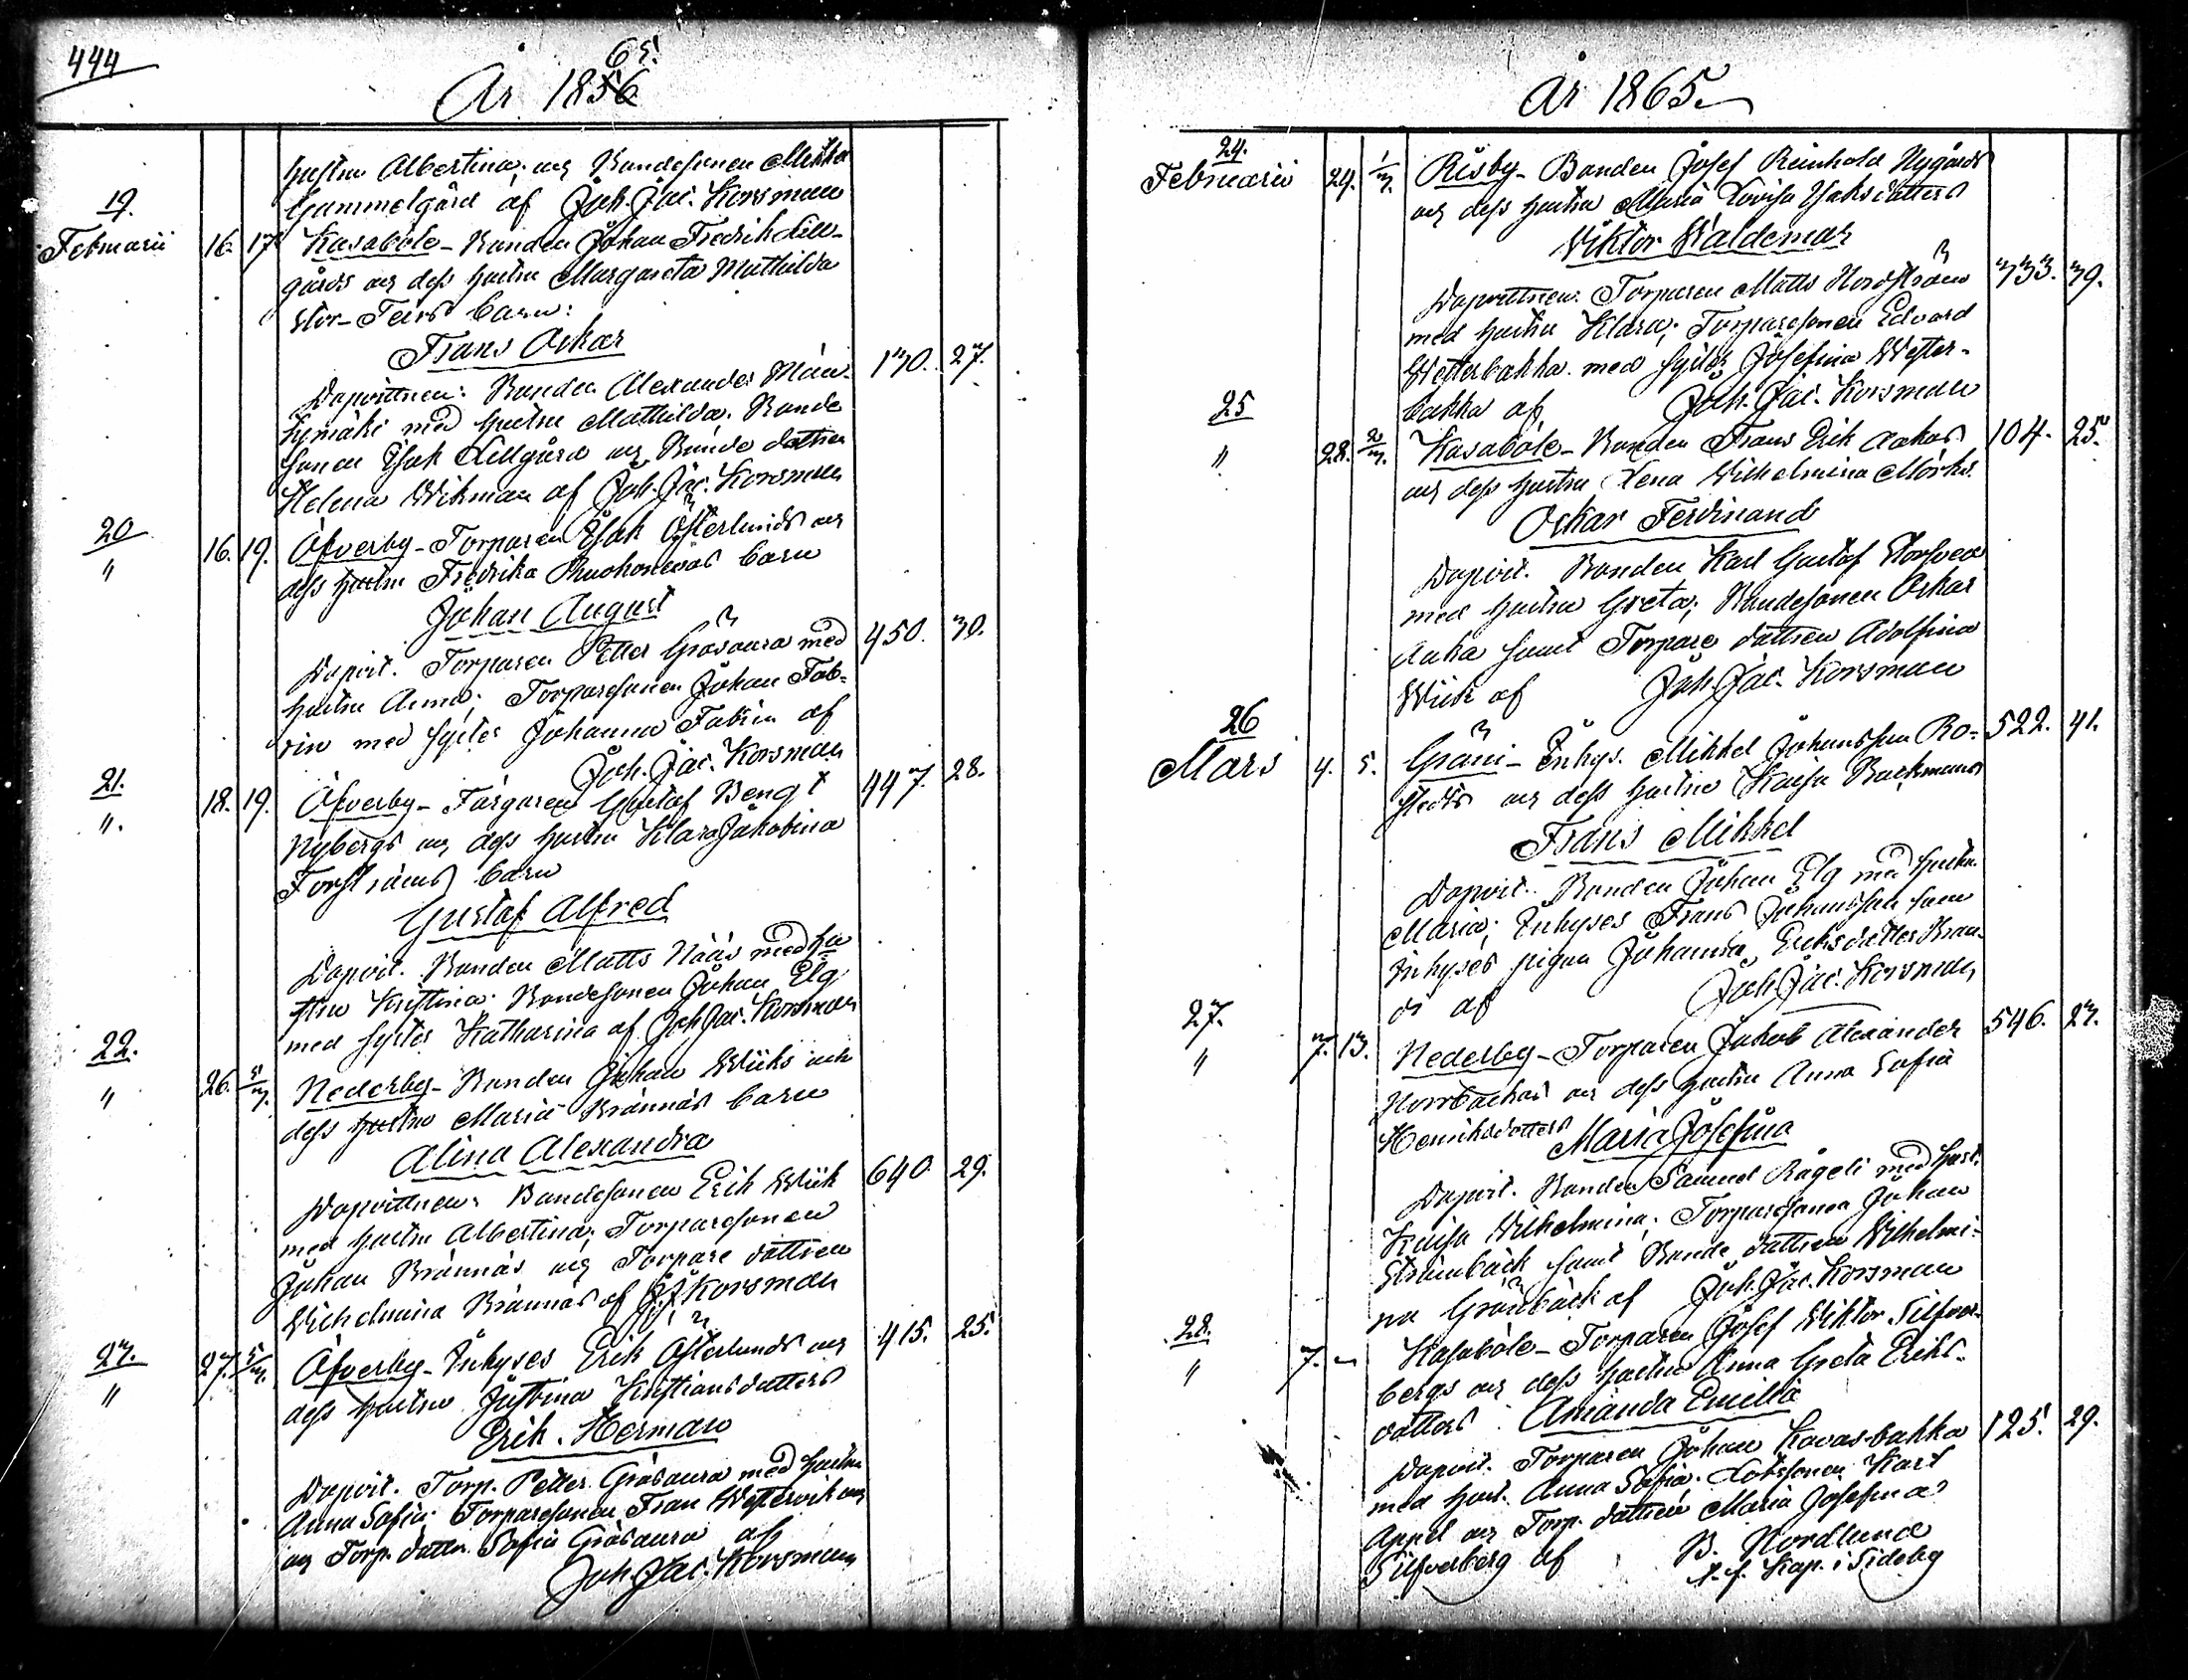 444
År 1856
65.
hustru Albertina; och Bondesonen Mikkel
Gammelgård af Joh. Jac. Korsman
19.
Februarii 16. 17. Kasaböle - Bonden Johan Fredrik Lill-
gårds och dess hustru Margareta Mathilda
Stor-Teirs barn:
Frans Oskar 130. 27.
Dopvittnen: Bonden Alexander Män-
tymäki med hustru Mathilda; Bonde
sonen Isak Lillgård och Bonde dottren
Helena Wikman af Joh. Jac. Korsman
20
" 16. 19. Åfverby - Torparen Isak Österlunds och
dess hustru Fredrika barn
Johan August
Dopvit. Torparen Petter Gråsaura med 450. 30.
hustru Anna; Torparesonen Johan Fab-
rin med syster Johanna Fabrin af
Joh. Jac. Korsman
21.
". 18. 19. Åfverby - Färgaren Gustaf Bengt 447. 28.
Nybergs och dess hustru Klara Jakobina
Forsströms barn
Gustaf Alfred
Dopvit. Bonden Matts Nääs med hu
stru Kristina; Bondesonen Johan Elg
med syster Katharina af Joh. Jac. Korsman
22.
" 26. 5/3. Nederby - Bonden Johan Wiiks och
dess hustru Maria Brännäs barn
Alina Alexandra
Dopvittnen: Bondesonen Erik Wiik 640 29.
med hustru Albertina; Torparesonen
Johan Brännäs och Torpare dottren
Wilhelmina Brännäs af J. J. Korsman
23.
" 27. 5/3. Åfverby - Inhyses Erik Österlunds och 415. 25.
dess hustru Justina Kristiansdotters
Erik Herman
Dopvit. Torp. Petter Gråsaura med hustru
Anna Sofia; Torparesonen Frans Westervik och
och Torp. dottr. Sofia Gråsaura af
Joh. Jac. Korsman
År 1865.
24.
Februarii 24. 1/3. Risby - Bonden Josef Reinhold Nygårds
och dess hustru Maria Lovisa Isaksdotters
Viktor Valdemar
Dopvittnen: Torparen Matts Nordström 333. 39.
med hustru Klara; Torparesonen Edvard
Westerbakka med syster Josefina Wester-
bakka af Joh. Jac. Korsman
25
" 28. 2/3. Kasaböle - Bonden Frans Erik Ankas 104. 25.
och dess hustru Lena Wilhelmina Mörks
Oskar Ferdinand
Dopvit. Bonden Karl Gustaf Storsved
med hustru Greta; Bondesonen Oskar
Anka samt Torpare dottren Adolfina
Wiik af Joh. Jac. Korsman
26
Mars 4. 5. Gräni - Inhys. Mikkel Johansson Ro- 522. 41.
stedts och dess hustru Kaisa Backmans
Frans Mikkel
Dopvit. Bonden Johan Elg med hustru
Maria; Inhyses Frans Johansson samt
Inhyses pigan Johanna Eriksdotter Bran-
di af Joh. Jac. Korsman
27.
" 7. 13. Nederby - Torparen Jakob Alexander 546. 23.
Norrbackas och dess hustru Anna Sofia
Henriksdotters Maria Josefina
Dopvit. Bonden Samuel Rågeli med hust.
Kaisa Wilhelmina; Torparesonen Johan
Strömbäck samt Bonde dottren Wilhelmi-
na Grönbäck af Joh. Jac. Korsman
28.
" 7. - Kasaböle - Torparen Josef Wiktor Silfver-
bergs och dess hustru Anna Greta Eriks-
dotters Amanda Emilia
Dopvit. Torparen Johan Kavas-bakka 125. 29.
med hust. Anna Sofia; Lotssonen Karl
Appel och Torp. dottren Maria Josefina
Silfverberg af B. Nordlund
t. f. Kap. i Sideby